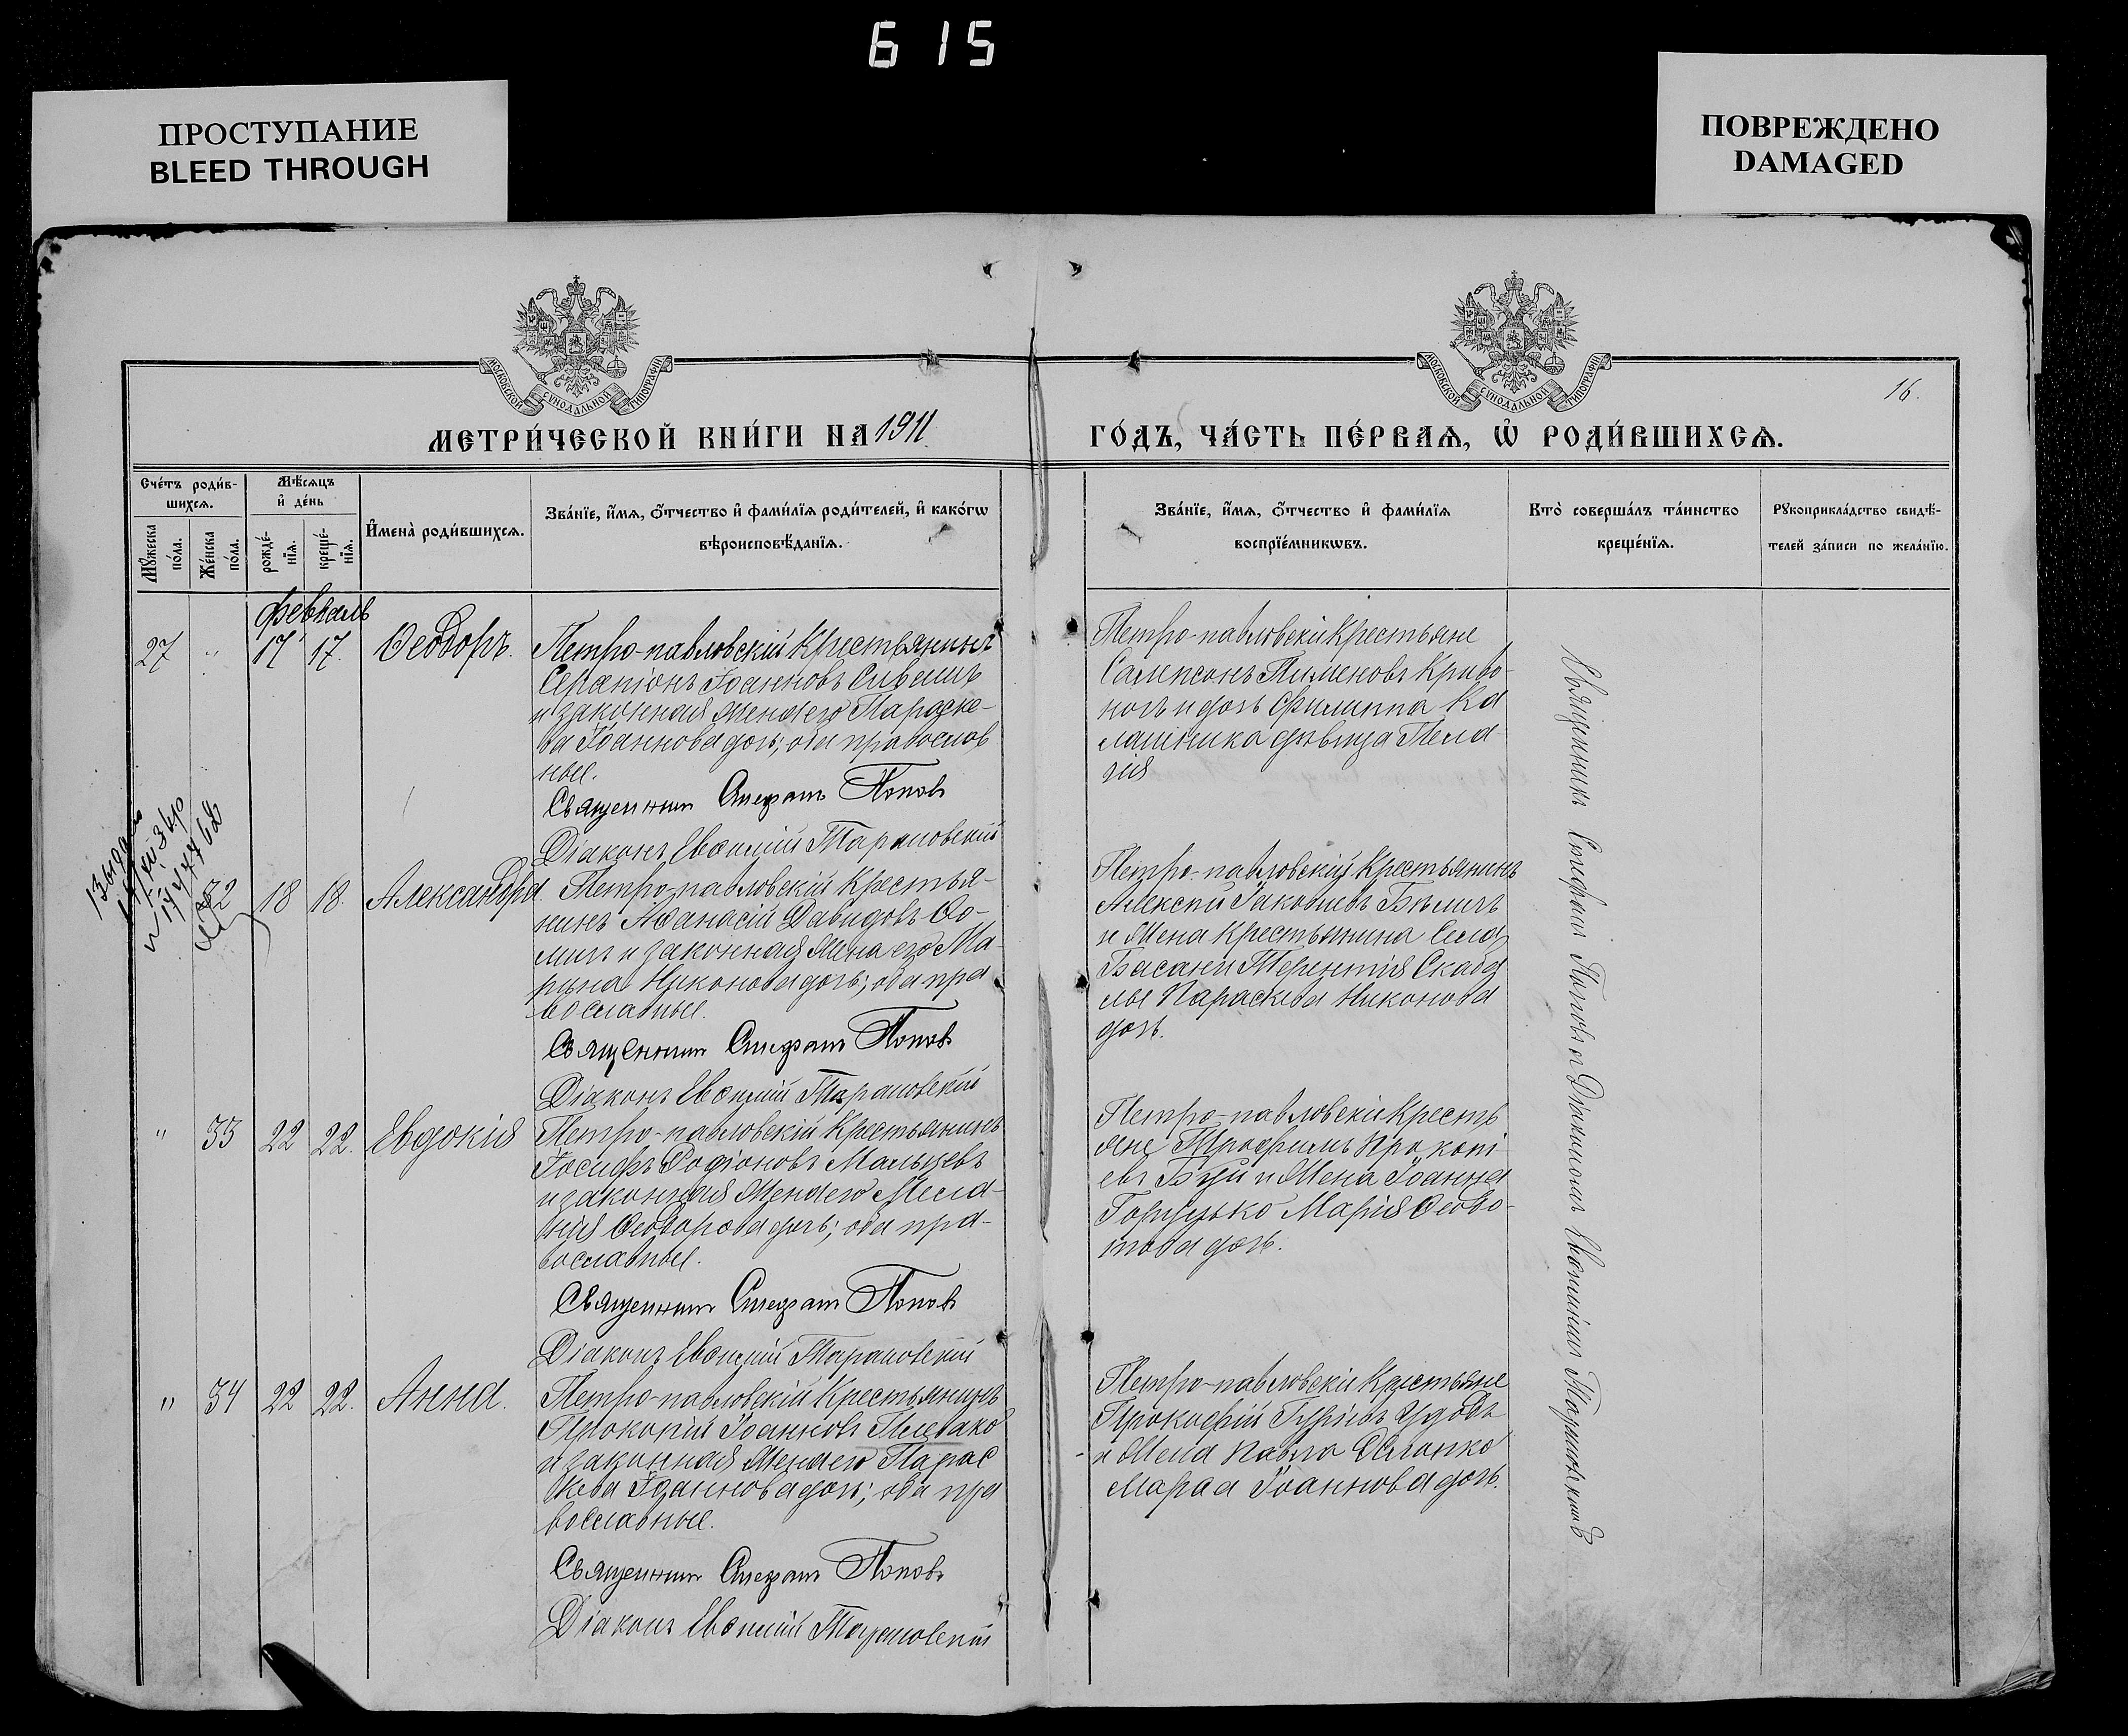 615
ПРОСТУПАНИЕ
BLEED THROUGH
ПОВРЕЖДЕНО
DAMAGED
МОСКОВСКОЙ СѴНОДАЛЬНОЙ ТИПОГРАФІИ
МОСКОВСКОЙ СѴНОДАЛЬНОЙ ТИПОГРАФІИ
16.
МЕТРИ́ЧЕСКОЙ КНИ́ГИ НА 1911
ГО́ДЪ, ЧА́СТЬ ПЕ́РВАѦ, Ѡ҆ РОДИ́ВШИХСѦ.
Сче́тъ роди́в-
шихсѧ.
Мꙋ́жеска
по́ла.
Же́нска
по́ла.
Мѣ́сѧцъ
и҆ де́нь
рожде́-
нїѧ.
креще́-
нїѧ.
И҆мена̀ роди́вшихсѧ.
Зва́нїе, и҆́мѧ, ѻ҆́тчество и҆ фами́лїѧ роди́телей, и҆ како́гѡ
вѣроисповѣ́данїѧ.
Зва́нїе, и҆́мѧ, ѻ҆́тчество и҆ фами́лїѧ
воспрїе́мникѡвъ.
Кто̀ соверша́лъ та́инство
креще́нїѧ.
Рꙋкоприкла́дство свидѣ́-
телей за́писи по жела́нїю.
февраль
27 " 17 17. Ѳеодоръ.
Петро-павловскій крестьянинъ
Серапіонъ Іоанновъ
и законная жена его Параске-
ва Іоаннова дочь; оба православ
ные.
Священник Стефанъ Попов
Діаконъ Евѳимій Тарановскій
Петро-павловскіи крестьяне
Сампсонъ Пименовъ Криво-
носъ и дочь Филиппа Ка
лашника дѣвица Пела-
гія
32 18 18. Александра
Петро-павловскій крестья-
нинъ Аѳанасій Давидовъ Ѳо-
мич и законная жена его Ма-
рина Никонова дочь; оба пра
вославные.
Священник Стефанъ Попов
Діаконъ Евѳимій Тарановскій
Петро-павловскій крестьянинъ
Алексій Іаковлевъ Бѣличъ
и жена крестьянина села
Басани Терентія Скаба
лы Параскева Никонова
дочь.
" 33 22 22. Евдокія
Петро-павловскій крестьянинъ
Іосифъ Родіоновъ Мальцевъ
и законная жена его Мела-
нія Ѳеодорова дочь; оба пра-
вославные.
Священник Стефанъ Попов
Діаконъ Евѳимій Тарановскій
Петро-павловскіи кресть
яне Трофимъ Прокопі-
евъ Буи и жена Іоанна
Горуцько Марія Ѳеодо-
това дочь.
" 34 22 22. Анна.
Петро-павловскій крестьянинъ
Прокопій Іоанновъ Плевако
и законная жена его Парас
кева Іоаннова дочь; оба пра
вославные.
Священник Стефанъ Попов
Діаконъ Евѳимій Тарановскій
Петро-павловскіи крестьяне
Прокофій Гуріевъ Удовъ
и жена Павла
Марѳа Іоаннова дочь.
Священникъ Стефанъ Поповъ съ Діакономъ Евѳиміемъ Тарановскимъ